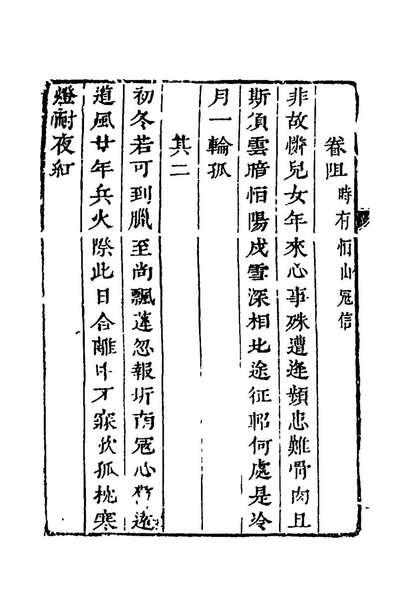 眷阻時有恒山寇信
非故憐兒女年來心事殊遭逢頻患難骨肉且
斯須雲暗恒陽戍雪深相北途征軺何處是冷
月一輪孤
其二
初冬若可到臘至尚飄蓬忽報圻南寇心
道風廿年兵火際此日合離中不寐欹孤枕寒
燈耐夜紅